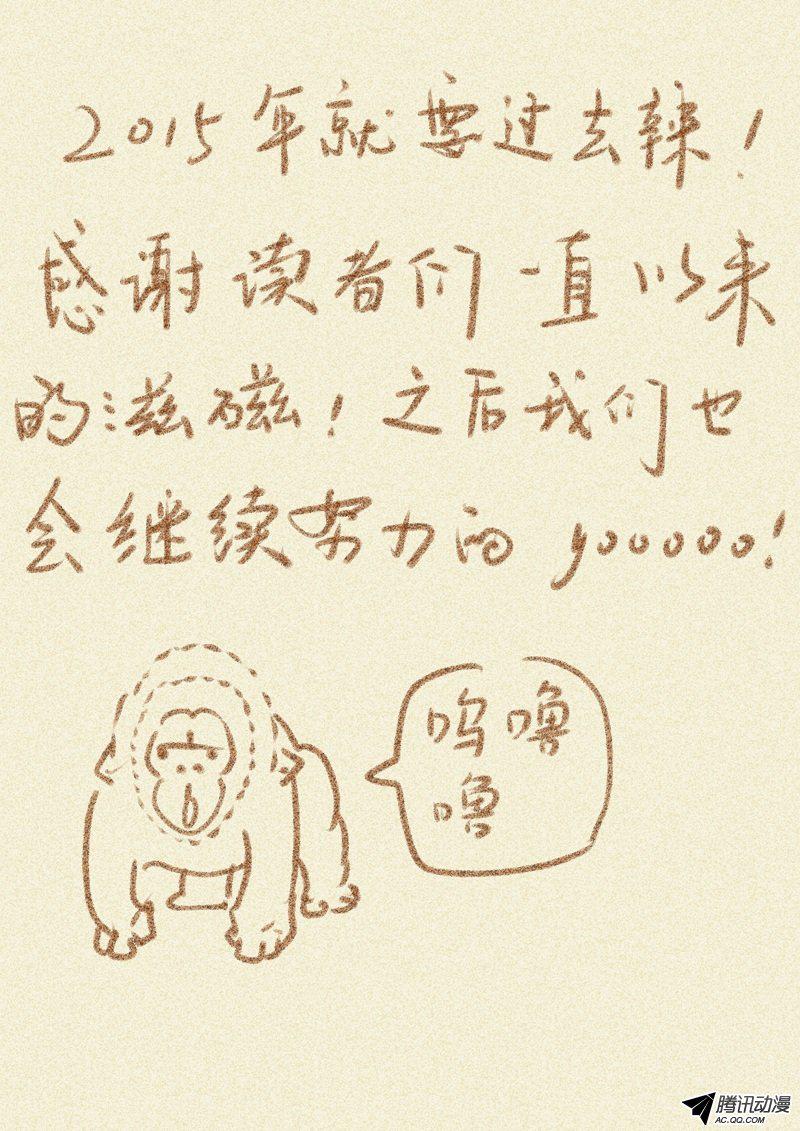 2015年就要过去辣！
感谢读者们一直以来
的滋磁！之后我们也
会继续努力的yooooo!
呜噜
噜
腾讯动漫
AC.QQ.COM